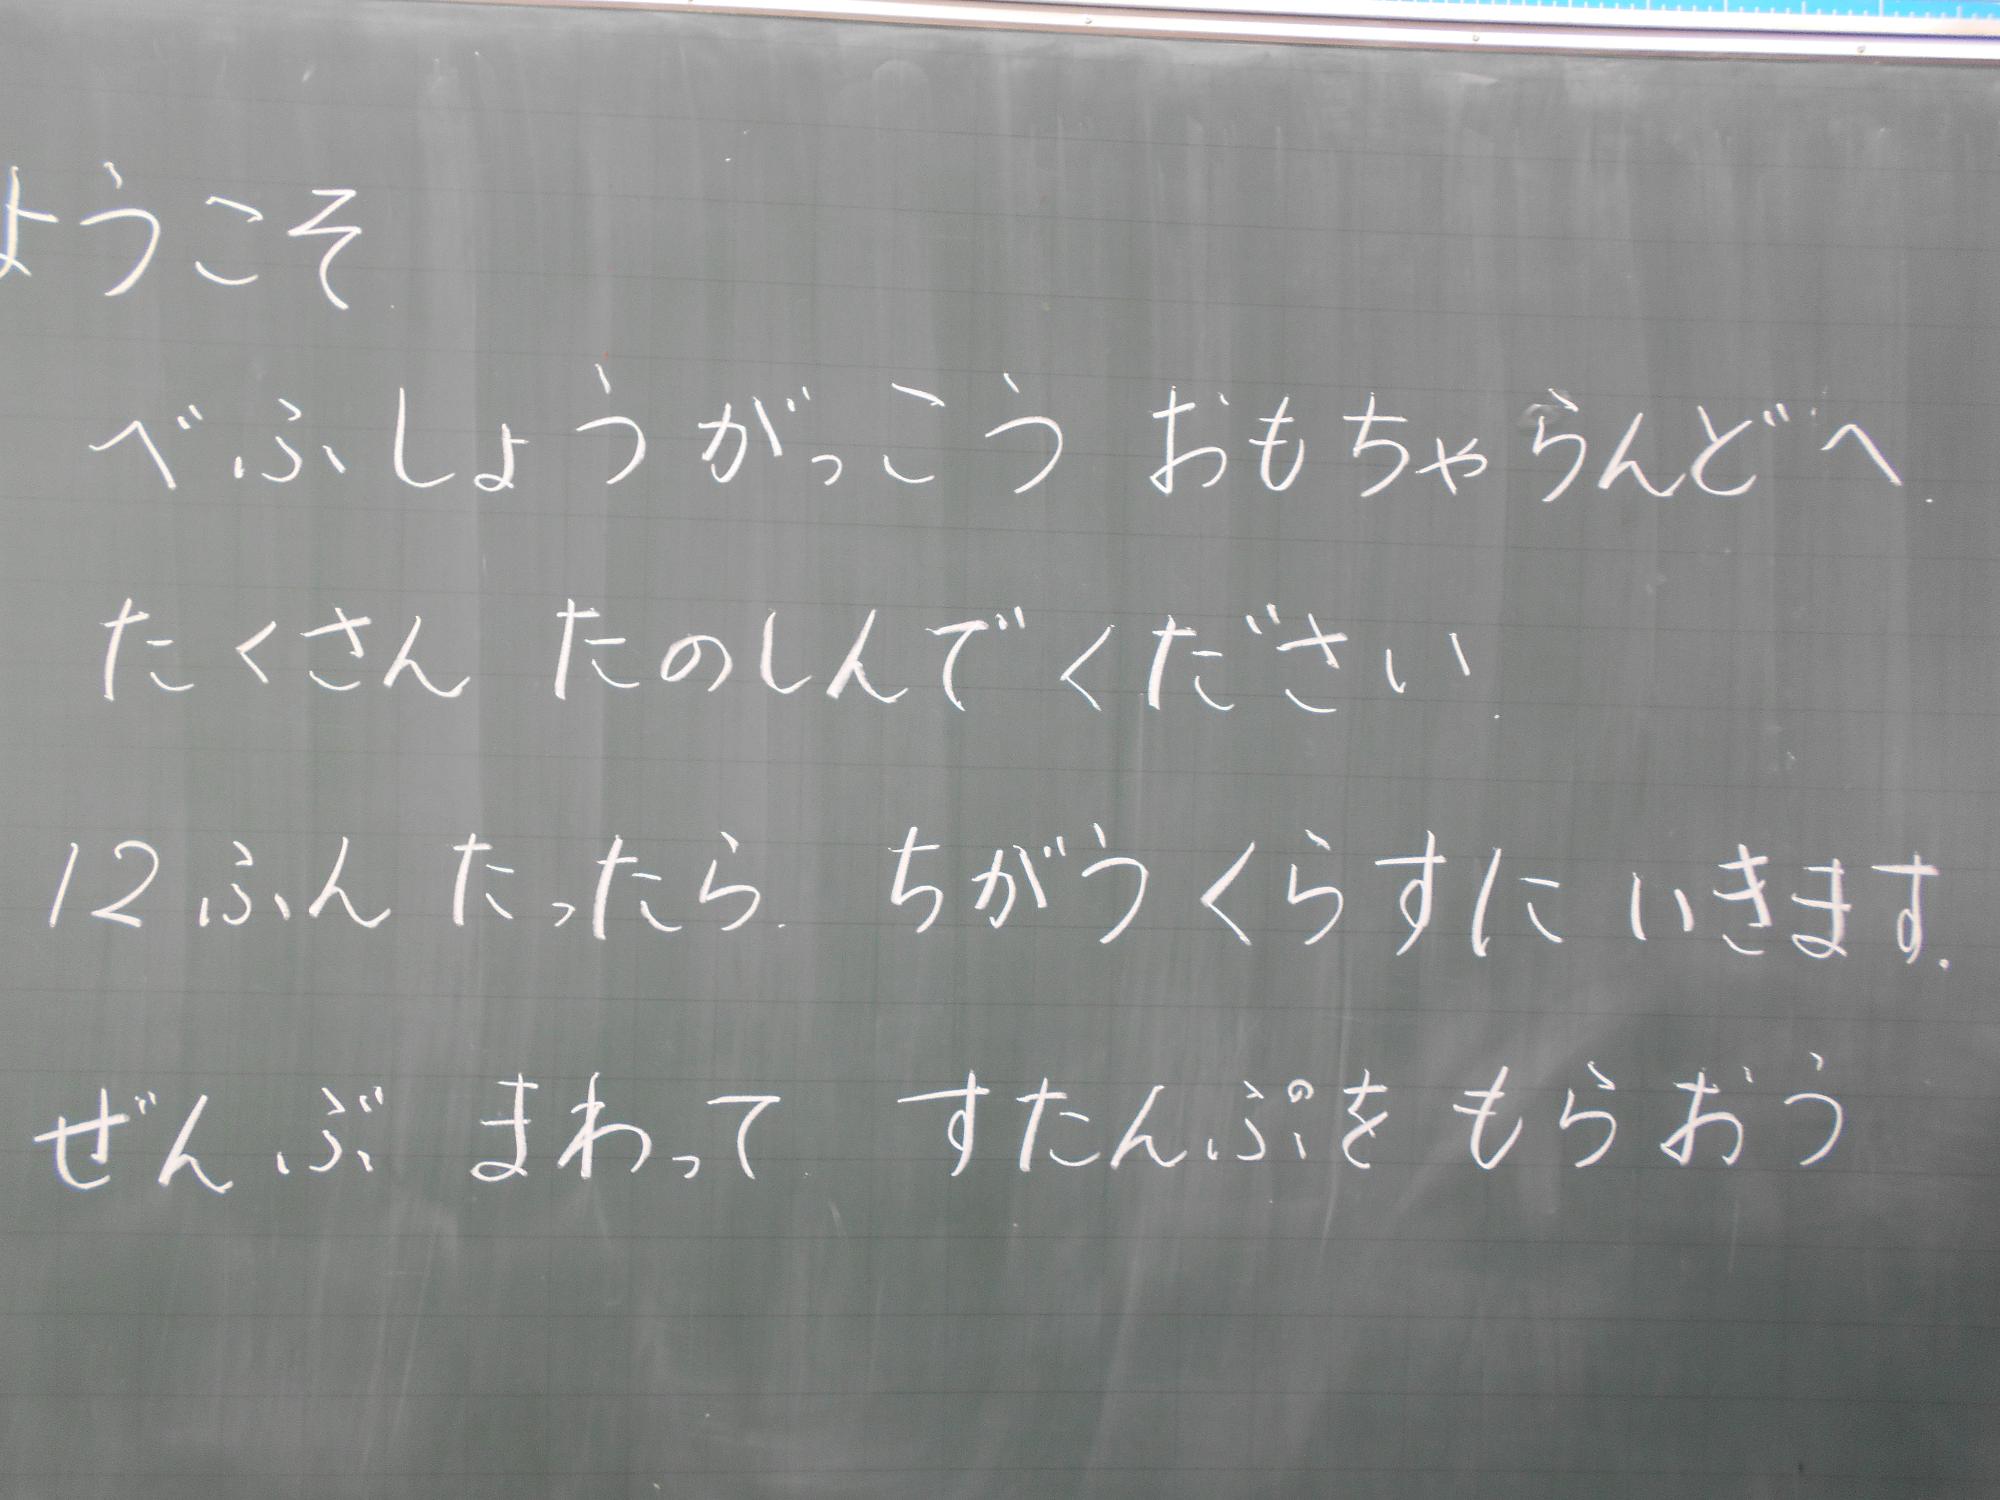 ようこそ
べふしょうがっこう おもちゃらんどへ
たくさん たのしんでください
12ふん たったら ちがうくらすに いきます.
ぜんぶ まわって すたんぷを もらおう